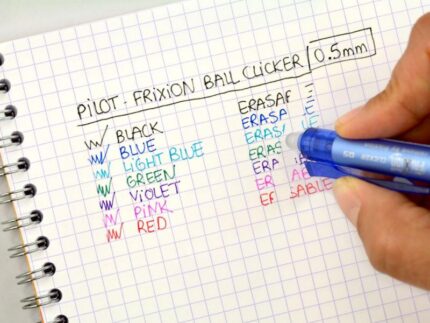 PILOT - FRIXION BALL CLICKER 0.5mm
BLACK
BLUE
LIGHT BLUE
GREEN
VIOLET
PINK
RED
ERASA
ERASA LE
ERAS LE
ERAS
ERA LE
ER ABLE
ER SABLE